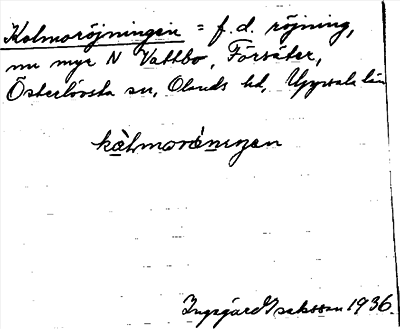 Kolmoröjningen = f.d. röjning,
nu myr N Vattbo, Försäter,
Österlövsta sn, Olands hd, Uppsala län
kòlmoröningen
Ingegärd Isaksson 1936.